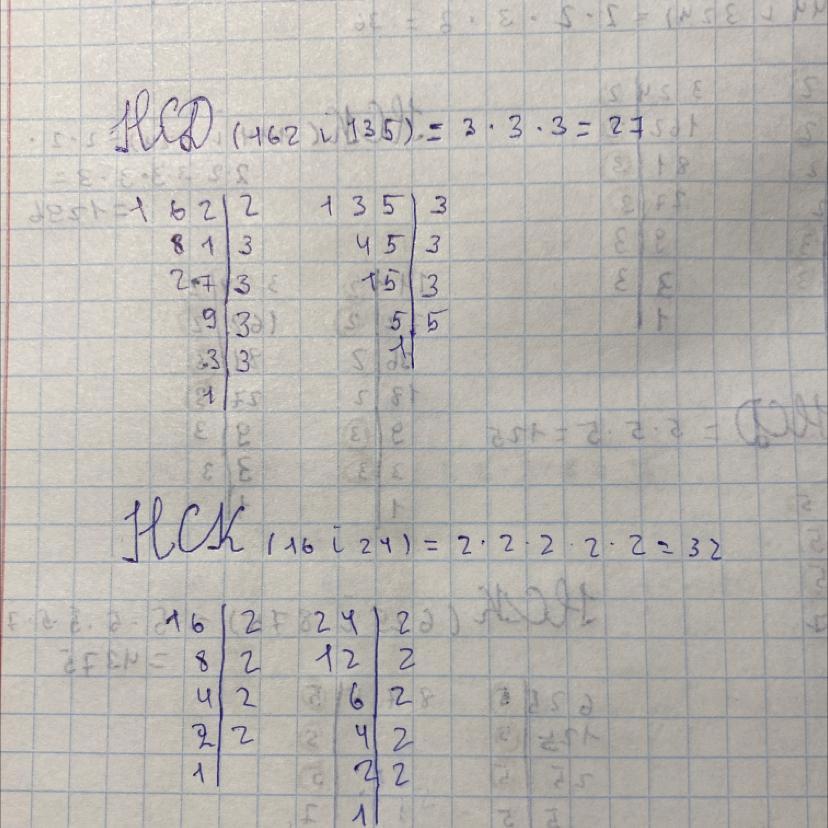 НСД (162 і 135) = 3 · 3 · 3 = 27
162 | 2 135 | 3
81 | 3 45 | 3
27 | 3 15 | 3
9 | 3 5 | 5
3 | 3 1
1
НСК (16 і 24) = 2 · 2 · 2 · 2 · 2 = 32
16 | 2 24 | 2
8 | 2 12 | 2
4 | 2 6 | 2
2 | 2 4 | 2
1 2 | 2
1